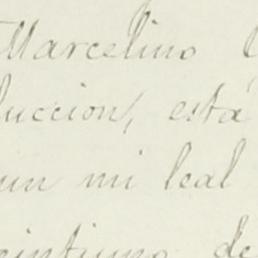 Marcelino
uccion, está
un mi leal
eintiuno de